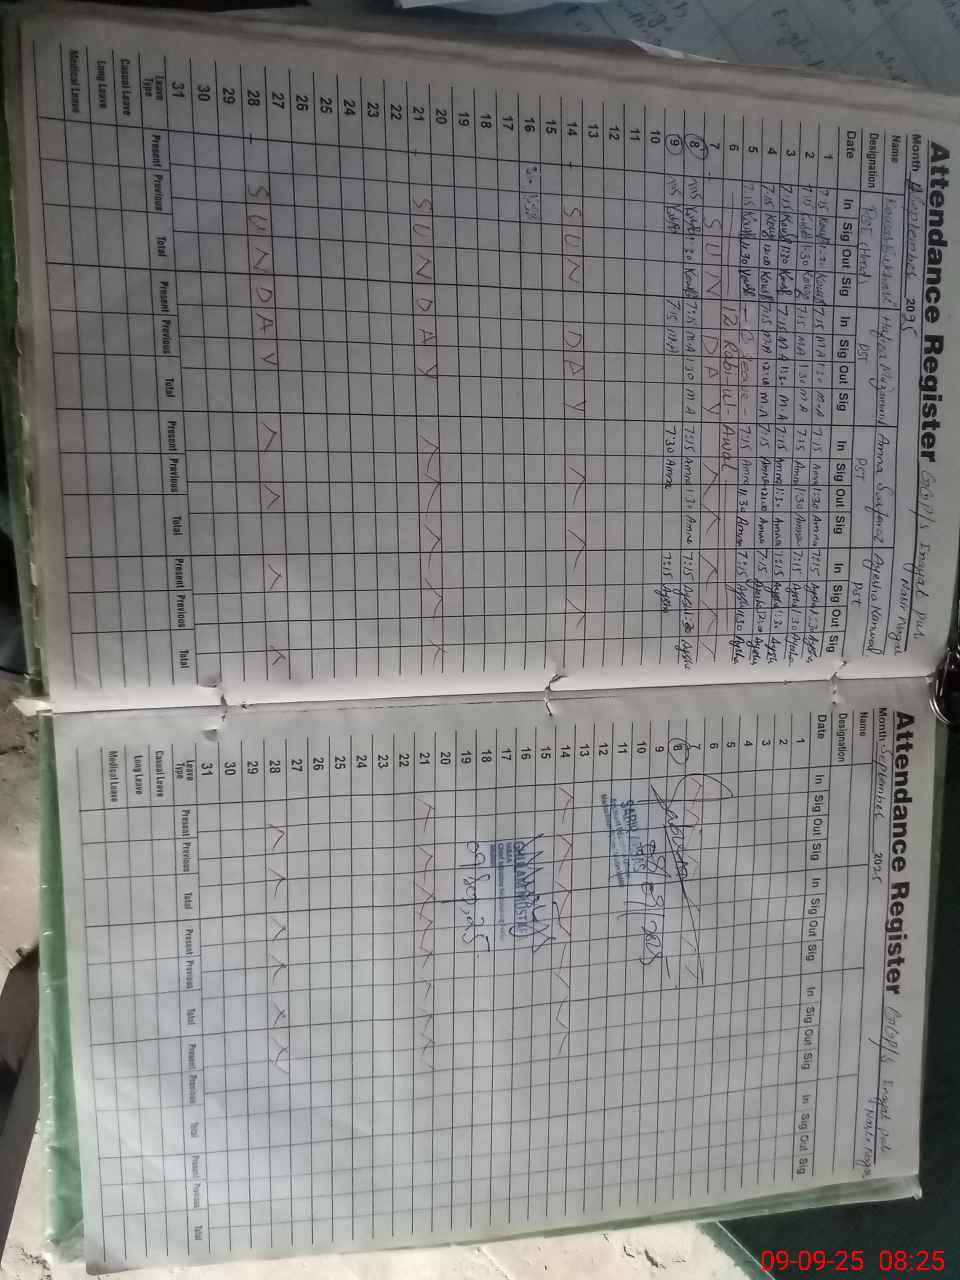 Attendance Register GGP/S Inayat pur
Nasir Nagar
Month September 2025
Name Kousar Hafiza Muqaddas Amna Sarfaraz Ayesha Kanwal
Designation PST (Head) PST PST PST
Date In Sig Out Sig In Sig Out Sig In Sig Out Sig In Sig Out Sig
1 7:15 1:30 7:15 MA 1:30 M.A 7:15 Amna 1:30 Amna 7:15 Ayesha 1:30 Ayesha
2 7:15 1:30 7:15 MA 1:30 MA 7:15 Amna 1:30 Amna 7:15 Ayesha 1:30 Ayesha
3 7:15 1:30 7:15 MA 1:30 M.A 7:15 Amna 1:30 Amna 7:15 Ayesha 1:30 Ayesha
4 7:15 12:00 7:15 MA 12:00 M.A 7:15 Amna 12:00 Amna 7:15 Ayesha 12:00 Ayesha
5 7:15 1:30 - C leave - 7:15 Amna 1:30 Amna 7:15 Ayesha 1:30 Ayesha
6 12 Rabi-ul-Awal
7 SUNDAY
8 7:15 1:30 7:15 MA 1:30 MA 7:15 Amna 1:30 Amna 7:15 Ayesha 1:30 Ayesha
9 7:15 7:15 MA 7:30 Amna 7:15 Ayesha
10
11
12
13
14 SUNDAY
15
16
17
18
19
20
21 SUNDAY
22
23
24
25
26
27
28 SUNDAY
29
30
31
Leave Type Present Previous Total Present Previous Total Present Previous Total Present Previous Total
Casual Leave
Long Leave
Medical Leave
Attendance Register GGP/S Inayat pur
Nasir Nagar
Month September 2025
Name
Designation
Date In Sig Out Sig In Sig Out Sig In Sig Out Sig In Sig Out Sig
1
2
3
4
5
6
7
8
9
10 08/09/2025
11
12
13
14
15
16 GHULAM MUSTAFA
17
18
19 09/09/25
20
21
22
23
24
25
26
27
28
29
30
31
Leave Type Present Previous Total Present Previous Total Present Previous Total Present Previous Total
Casual Leave
Long Leave
Medical Leave
09-09-25 08:25